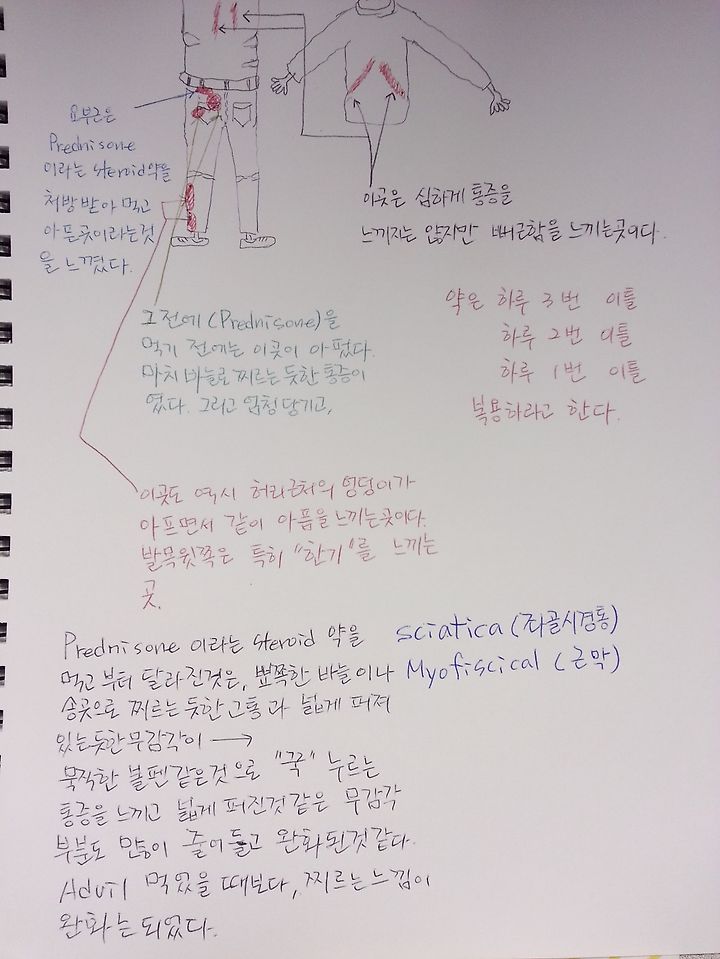 요부근은
Prednisone
이라는 steroid 약을
처방받아 먹고
아픈곳이라는것
을 느꼈다.
이곳은 심하게 통증을
느끼지는 않지만 뻐근함을 느끼는곳이다.
그전에 (Prednisone)을
먹기 전에는 이곳이 아펐다.
마치 바늘로 찌르는 듯한 통증이
였다. 그리고 엄청 당기고,
약은 하루 3번 이틀
하루 2번 이틀
하루 1번 이틀
복용하라고 한다.
이곳도 역시 허리근처의 엉덩이가
아프면서 같이 아픔을 느끼는 곳이다.
발목윗쪽은 특히 "한기"를 느끼는
곳.
Prednisone 이라는 steroid 약을
먹고 부터 달라진것은, 뾰쪽한 바늘이나
송곳으로 찌르는듯한 고통과 넓게 퍼져
있는듯한 무감각이 →
묵직한 볼펜같은것으로 "꾹" 누르는
통증을 느끼고 넓게 퍼진것 같은 무감각
부분도 많이 줄어 들고 완화된것 같다.
Advil 먹었을 때보다, 찌르는 느낌이
완화는 되었다.
sciatica (좌골시경통)
Myofiscical (근막)